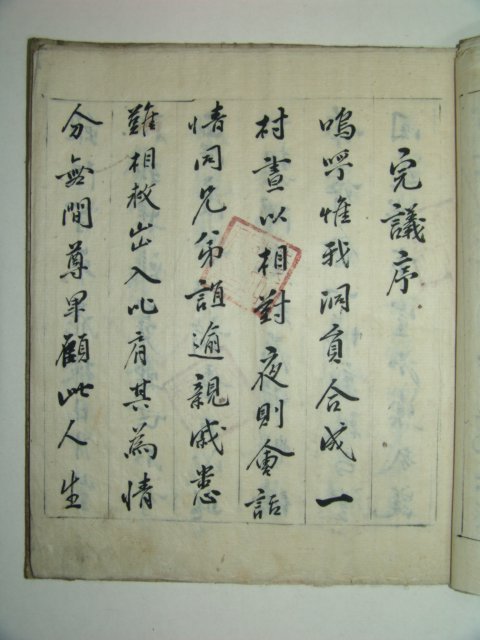 完議序
嗚呼惟我洞員合成一
村晝以相對夜則會話
情同兄弟誼逾親戚患
難相救出入比肩其爲情
分無間尊卑顧此人生